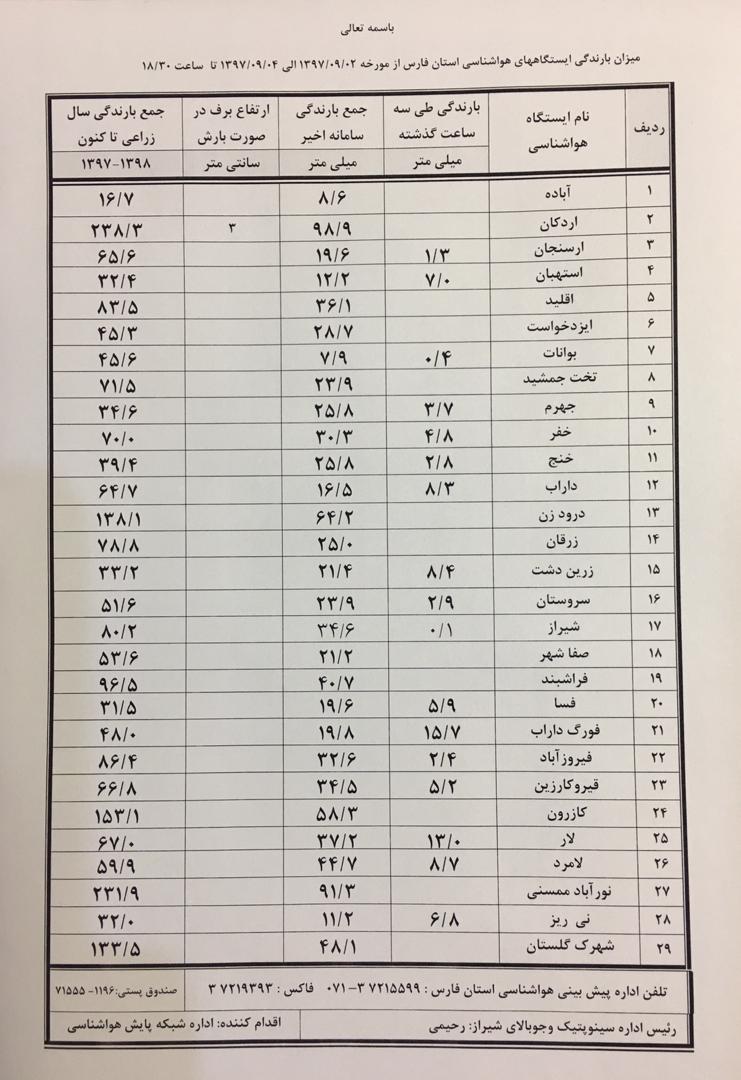 باسمه تعالی
میزان بارندگی ایستگاههای هواشناسی استان فارس از مورخه ۱۳۹۷/۰۹/۰۲ الی ۱۳۹۷/۰۹/۰۴ تا ساعت ۱۸/۳۰
ردیف نام ایستگاه هواشناسی بارندگی طی سه ساعت گذشته میلی متر جمع بارندگی سامانه اخیر میلی متر ارتفاع برف در صورت بارش سانتی متر جمع بارندگی سال زراعی تا کنون ۱۳۹۷-۱۳۹۸
۱ آباده ۸/۶ ۱۶/۷
۲ اردکان ۹۸/۹ ۳ ۲۳۸/۳
۳ ارسنجان ۱/۳ ۱۹/۶ ۶۵/۶
۴ استهبان ۷/۰ ۱۲/۲ ۳۲/۴
۵ اقلید ۳۶/۱ ۸۳/۵
۶ ایزدخواست ۲۸/۷ ۴۵/۳
۷ بوانات ۰/۴ ۷/۹ ۴۵/۶
۸ تخت جمشید ۲۳/۹ ۷۱/۵
۹ جهرم ۳/۷ ۲۵/۸ ۳۴/۶
۱۰ خفر ۴/۸ ۳۰/۳ ۷۰/۰
۱۱ خنج ۲/۸ ۲۵/۸ ۳۹/۴
۱۲ داراب ۸/۳ ۱۶/۵ ۶۴/۷
۱۳ درود زن ۶۴/۲ ۱۳۸/۱
۱۴ زرقان ۲۵/۰ ۷۸/۸
۱۵ زرین دشت ۸/۴ ۲۱/۴ ۳۳/۲
۱۶ سروستان ۲/۹ ۲۳/۹ ۵۱/۶
۱۷ شیراز ۰/۱ ۳۴/۶ ۸۰/۲
۱۸ صفا شهر ۲۱/۲ ۵۳/۶
۱۹ فراشبند ۴۰/۷ ۹۶/۵
۲۰ فسا ۵/۹ ۱۹/۶ ۳۱/۵
۲۱ فورگ داراب ۱۵/۷ ۱۹/۸ ۴۸/۰
۲۲ فیروزآباد ۲/۴ ۳۲/۶ ۸۶/۴
۲۳ قیروکارزین ۵/۲ ۳۴/۵ ۶۶/۸
۲۴ کازرون ۵۸/۳ ۱۵۳/۱
۲۵ لار ۱۳/۰ ۳۷/۲ ۶۷/۰
۲۶ لامرد ۸/۷ ۴۴/۷ ۵۹/۹
۲۷ نورآباد ممسنی ۹۱/۳ ۲۳۱/۹
۲۸ نی ریز ۶/۸ ۱۱/۲ ۳۲/۰
۲۹ شهرک گلستان ۴۸/۱ ۱۳۳/۵
تلفن اداره پیش بینی هواشناسی استان فارس : ۳۷۲۱۵۵۹۹-۰۷۱ فاکس : ۳۷۲۱۹۳۹۳ صندوق پستی:۱۱۹۶-۷۱۵۵۵
رئیس اداره سینوپتیک وجوبالای شیراز: رحیمی اقدام کننده: اداره شبکه پایش هواشناسی